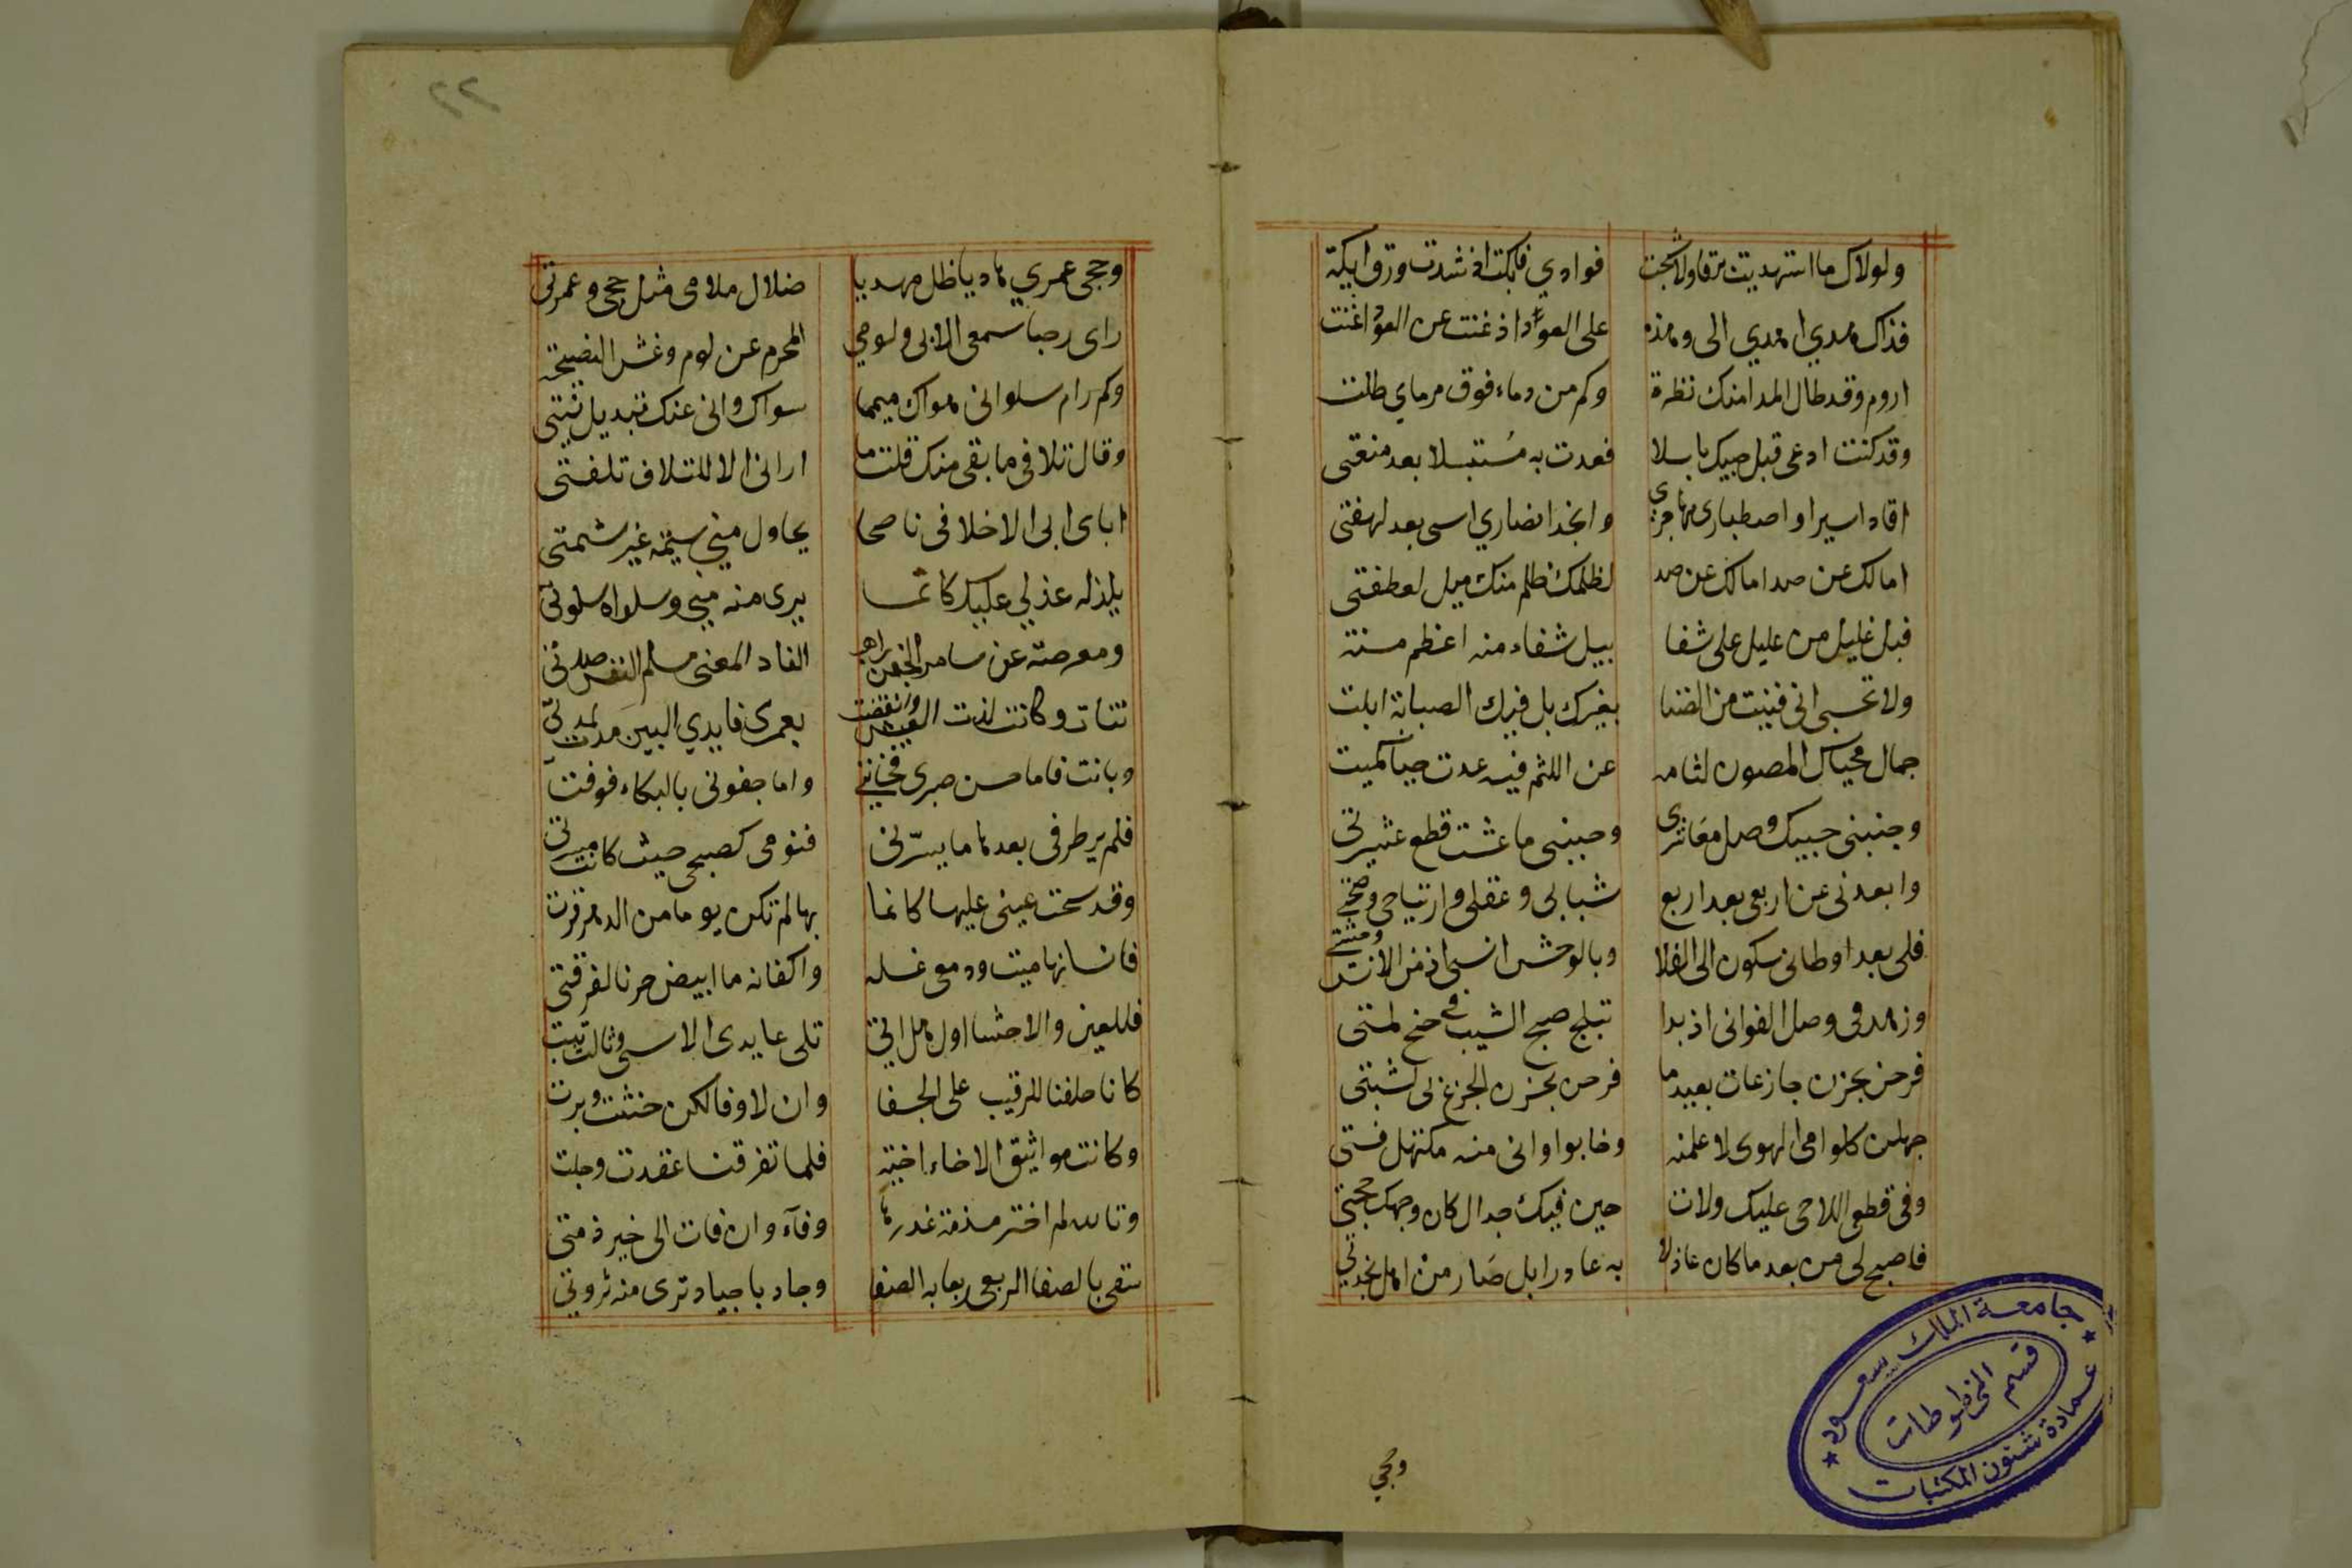 ولولاك ما استهديت برقا ولا شجت فوادي فابكت اذ شدت ورق ايكة
فذاك هدي اهدي الى وهذه على العود اذ غنت عن العود اغنت
اروم وقد طال المدا منك نظرة وكم من دماء فوق مرماي طلت
وقد كنت ادعى قبل حبيك باسلا فعدت به مستبسلا بعد منعتى
اقاد اسيرا واصطبارى مهاجرى وانجد انصاري اسى بعد لهفتى
امالك عن صد امالك عن صد لظلمك ظلم منك ميل لعطفتى
فبل غليل من عليل على شفا يبل شفاء منه اعظم منة
ولا تحسبى انى فنيت من الضنا بغيرك بل فيك الصبابة ابلت
جمال محياك المصون لثامه عن اللثم فيه عدت حيا كميت
وجنبنى حبيك وصل معاشرى وحببنى ما عشت قطع عشيرتى
وابعدنى عن اربعى بعد اربع شبابى وعقلى وارتياحى وصحتى
فلى بعد اوطانى سكون الى الفلا وبالوحش انسى اذ من الانس وحشتى
وزهد فى وصل الغوانى اذ بدا تبلج صبح الشيب فى جنح لمتى
فرحن بحزن جازعات بعيد ما فرحن بحزن الجزع لى لشبتى
جهلن كلوامى الهوى لا علمنه وخابوا وانى منه مكتهل فتى
وفى قطعى اللاحى عليك ولات حين فيك جدال كان وجهك حجتى
فاصبح لى من بعد ما كان عاذلا به عاذرا بل صار من اهل نجدتى
وحجى
٢٢
وحجى عمري هاديا ظل مهديا ضلال ملامى مثل حجى وعمرتى
راى رجبا سمعى الابى ولومى المحرم عن لوم وغش النصيحة
وكم رام سلوانى هواك ميمما سواك وانى عنك تبديل نيتى
وقال تلافى ما بقى منك قلت ما ارانى الا للتلاف تلفتى
اباى ابى الاخلافى ناصحا يحاول منى شيمة غير شيمتى
يلذ له عذلى عليك كانما يرى منه منى وسلواه سلوتى
ومعرضة عن سامر الجفن راهب الفاد المعنى مسلم النفس صدتى
تناءت وكانت لذت العيش وانقضت بعمرى فايدي البين مدت لمدتى
وبانت فاما حسن صبرى فخاننى واما جفونى بالبكاء فوفت
فلم ير طرفى بعدها ما يسرنى فنومى كصبحى حيث كانت مسرتى
وقد سخت عينى عليها كانما بها لم تكن يوما من الدهر قرت
فانسانها ميت ودمعى غسله واكفانه ما ابيض حزنا لفرقتى
فللعين والاحشا اول هل اتى تلى عايدى الاسى وثالث تبت
كانا حلفنا للرقيب على الجفا وان لا وفا لكن حنثت وبرت
وكانت مواثيق الاخاء اخية فلما تفرقنا عقدت وحلت
وتالله لم اختر مذمة غدرها وفآء وان فات الى خير ذمتى
سقى بالصفا الربعى ربعا به الصفا وجاد باجياد ثرى منه ثروتى
جامعة الملك سعود
قسم المخطوطات
عمادة شئون المكتبات